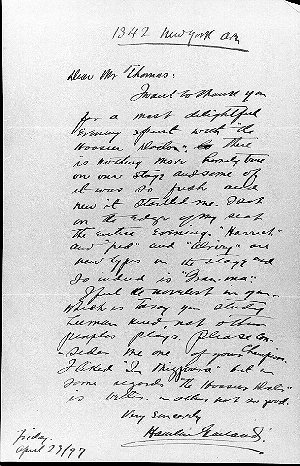 1342 New York Av
Dear Mr Thomas:
I want to thank you
for a most delightful
evening spent with the
Hoosier Doctor". There
is nothing more homely true
on our stage and some of
it was so fresh and
new it startled me. I sat
on the edge of my seat
the entire evening. "Harriet"
and and are
new types on the stage and
so indeed is "Gran-ma"
I feel the novelist in you.
Which is to say you study
human kind, not other
peoples plays. Please con-
sider me one of your Champions.
I liked "In Mizzoura" but in
some regards the Hoosier
is better. in others not so good.
Very Sincerely
Hamlin Garland
Friday.
April 23/97